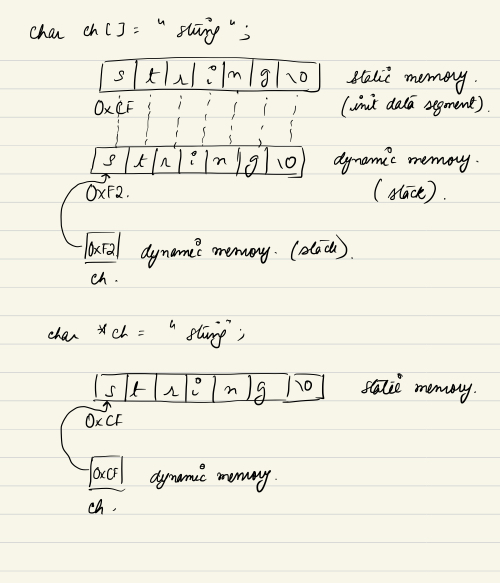 char ch[] = "string";
s t r i n g \0 static memory.
0xCF (init data segment).
s t r i n g \0 dynamic memory.
0xF2. (stack).
0xF2 dynamic memory. (stack).
ch.
char *ch = "string";
s t r i n g \0 static memory.
0xCF
0xCF dynamic memory.
ch.